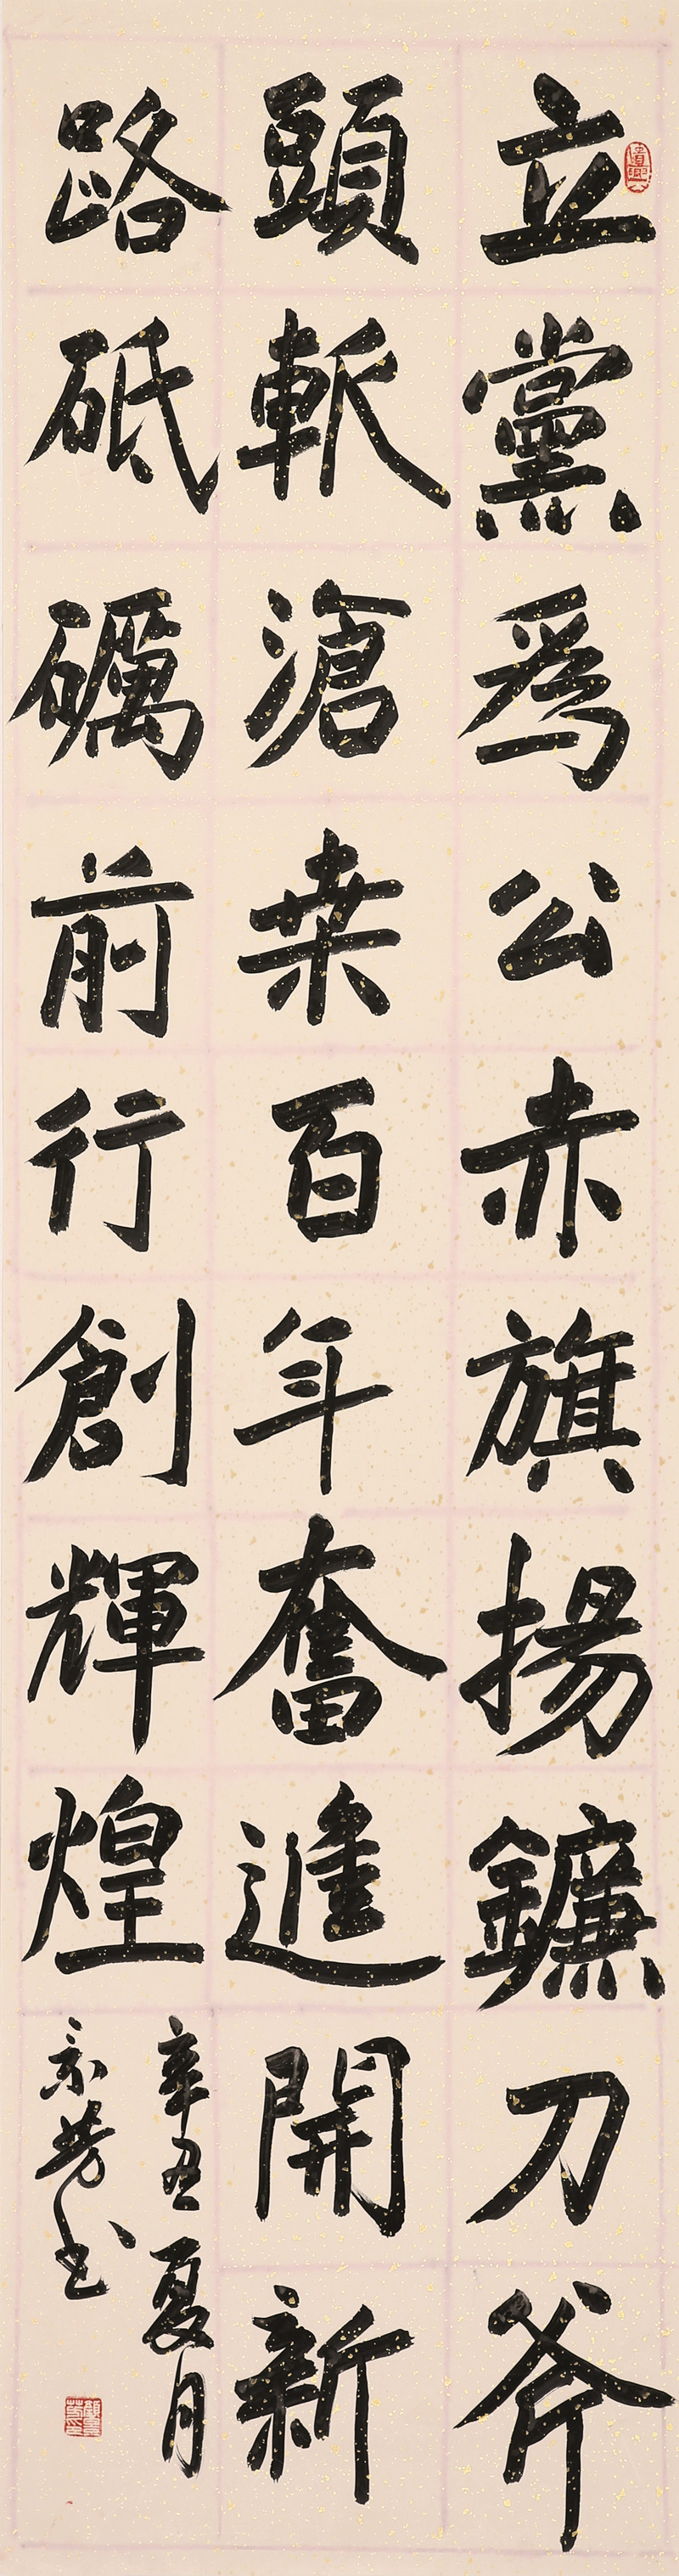 立黨爲公赤旗揚鐮刀斧
頭斬滄桒百年奮進開新
路砥礪前行創輝煌
辛丑夏月
景芳书